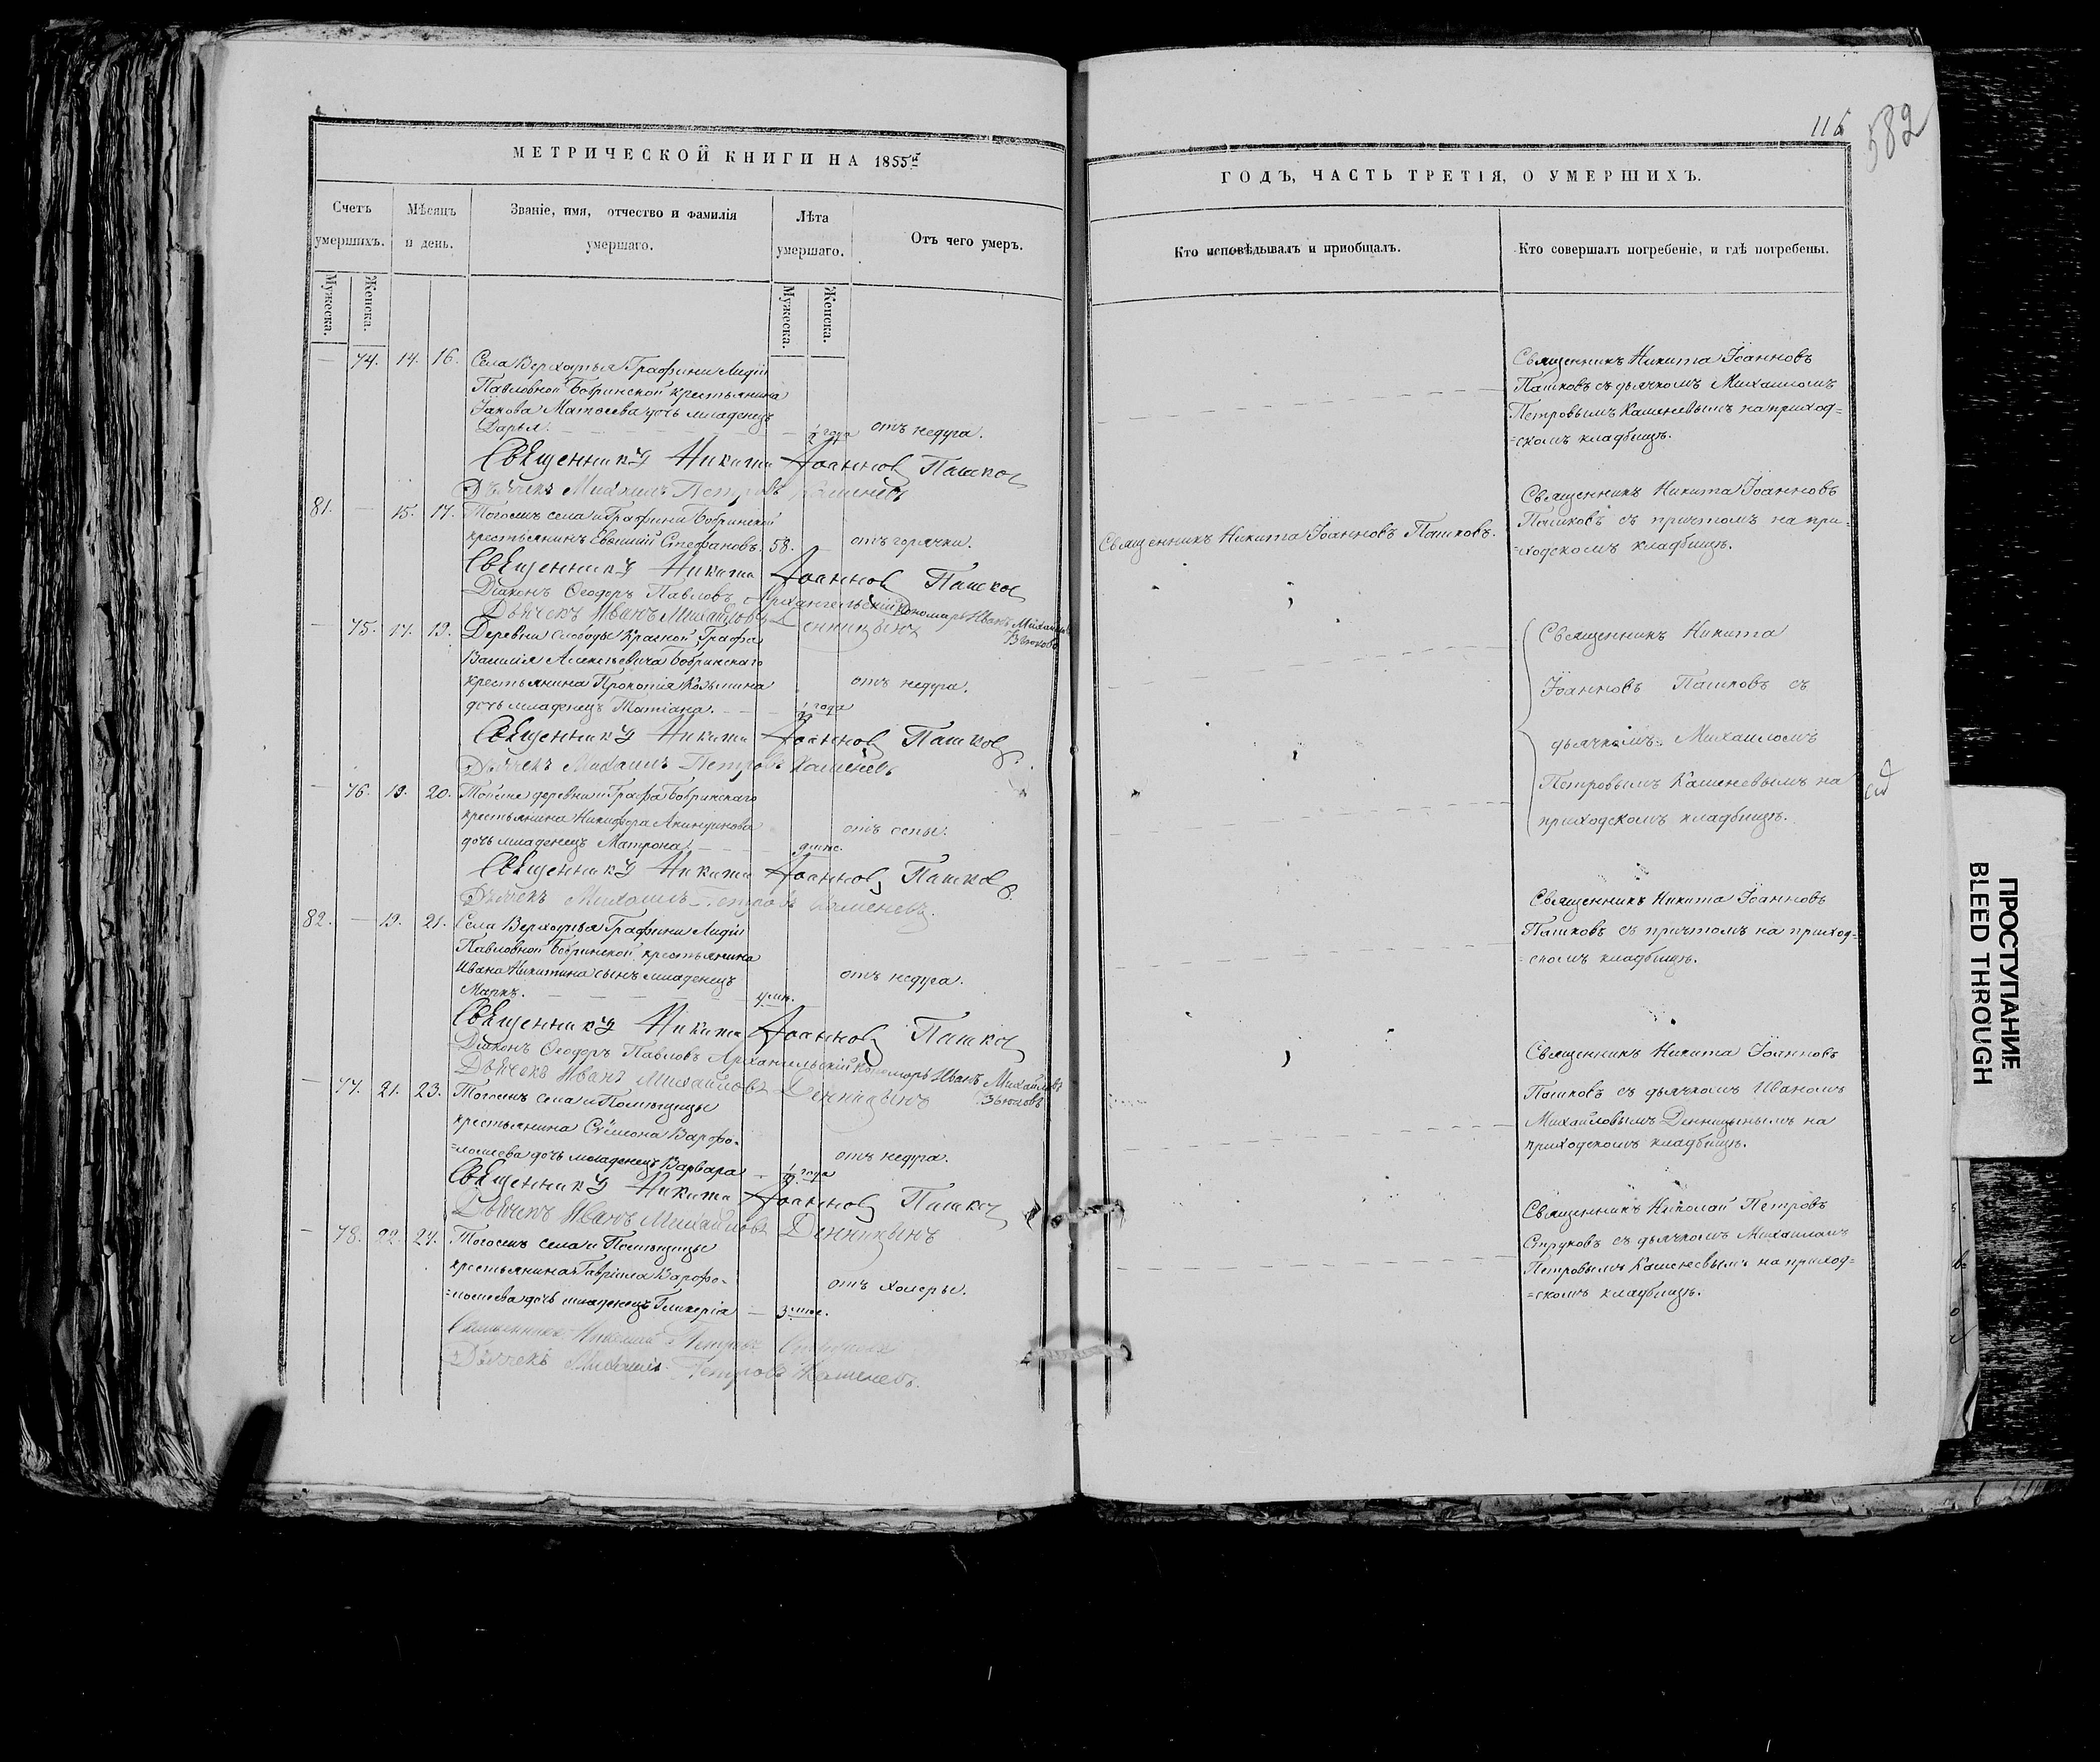 МЕТРИЧЕСКОЙ КНИГИ НА 1855й
Счетъ умершихъ.
Мужеска.
Женска.
Мѣсяцъ и день.
Званіе, имя, отчество и фамилія умершаго.
Лѣта умершаго.
Мужеска.
Женска.
Отъ чего умеръ.
— 74. 14. 16. Села Верхоупья Графини Лидіи
Павловной Бобринской крестьянина
Іакова Матѳеева дочь младенецъ
Дарья. — ½ года отъ недуга.
Священникъ Никита Іоанновъ Пашковъ
Дьячекъ Михаилъ Петровъ Каменевъ
81. — 15. 17. Тогожъ села и Графини Бобринской
крестьянинъ Евѳимій Стефановъ. 58. — отъ горячки.
Священникъ Никита Іоанновъ Пашковъ
Діаконъ Ѳеодоръ Павловъ Архангельскій Пономарь Иванъ Михайловъ
Дьячекъ Иванъ Михайловъ Денницынъ
— 75. 17. 19. Деревни Слободы Красной, Графа
Василія Алексѣевича Бобринскаго
крестьянина Прокопія Козьмина
дочь младенецъ Татіана. — ½ года отъ недуга.
Священникъ Никита Іоанновъ Пашковъ
Дьячекъ Михаилъ Петровъ Каменевъ
— 76. 19. 20. Тойже деревни и Графа Бобринскаго
крестьянина Никифора Акиндинова
дочь младенецъ Матрона. — отъ оспы.
Священникъ Никита Іоанновъ Пашковъ
Дьячекъ Михаилъ Петровъ Каменевъ.
82. — 19. 21. Села Верхоупья Графини Лидіи
Павловной Бобринской крестьянина
Ивана Никитина сынъ младенецъ
Маркъ. — отъ недуга.
Священникъ Никита Іоанновъ Пашковъ
Діаконъ Ѳеодоръ Павловъ Архангельскій Пономарь Иванъ Михайловъ
Дьячекъ Иванъ Михайловъ Денницынъ
— 77. 21. 23. Тогожъ села и Помѣщицы
крестьянина Сѵмеона Варѳо-
=ломеева дочь младенецъ Варвара — ½ года отъ недуга.
Священникъ Никита Іоанновъ Пашковъ
Дьячекъ Иванъ Михайловъ Денницынъ
— 78. 22. 24. Тогожъ села и Помѣщицы
крестьянина Гавріила Варѳо-
=ломеева дочь младенецъ Гликерія — отъ холеры.
Священникъ Николай Петровъ Струковъ
Дьячекъ Михаилъ Петровъ Каменевъ.
115
582
ГОДЪ, ЧАСТЬ ТРЕТІЯ, О УМЕРШИХЪ.
Кто исповѣдывалъ и приобщалъ.
Кто совершалъ погребеніе, и гдѣ погребены.
Священникъ Никита Іоанновъ
Пашковъ съ дьячкомъ Михаиломъ
Петровымъ Каменевымъ на приход=
=скомъ кладбищѣ.
Священникъ Никита Іоанновъ Пашковъ.
Священникъ Никита Іоанновъ
Пашковъ съ причтомъ на при=
=ходскомъ кладбищѣ.
Священникъ Никита
Іоанновъ Пашковъ съ
дьячкомъ Михаиломъ
Петровымъ Каменевымъ на
приходскомъ кладбищѣ.
Священникъ Никита Іоанновъ
Пашковъ съ причтомъ на приход=
=скомъ кладбищѣ.
Священникъ Никита Іоанновъ
Пашковъ съ дьячкомъ Иваномъ
Михайловымъ Денницынымъ на
приходскомъ кладбищѣ.
Священникъ Николай Петровъ
Струковъ съ дьячкомъ Михаиломъ
Петровымъ Каменевымъ на приход=
=скомъ кладбищѣ.
ПРОСТУПАНИЕ
BLEED THROUGH